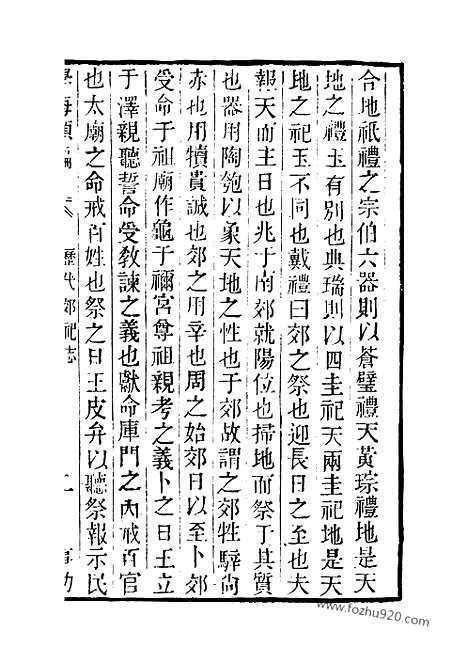 合地祇禮之宗伯六器則以蒼璧禮天黃琮禮地是天
地之禮玉有別也典瑞則以四圭祀天兩圭祀地是天
地之祀玉不同也戴禮曰郊之祭也迎長日之至也夫
報天而主日也兆于南郊就陽位也掃地而祭于其質
也器用陶匏以象天地之性也于郊故謂之郊牲騂尚
赤也用犢貴誠也郊之用辛也周之始郊日以至卜郊
受命于祖廟作龜于禰宮尊祖親考之義卜之日王立
于澤親聽誓命受教諫之義也獻命庫門之內戒百官
也太廟之命戒百姓也祭之日王皮弁以聽祭報示民
歷代郊祀志
www.fozhu920.com